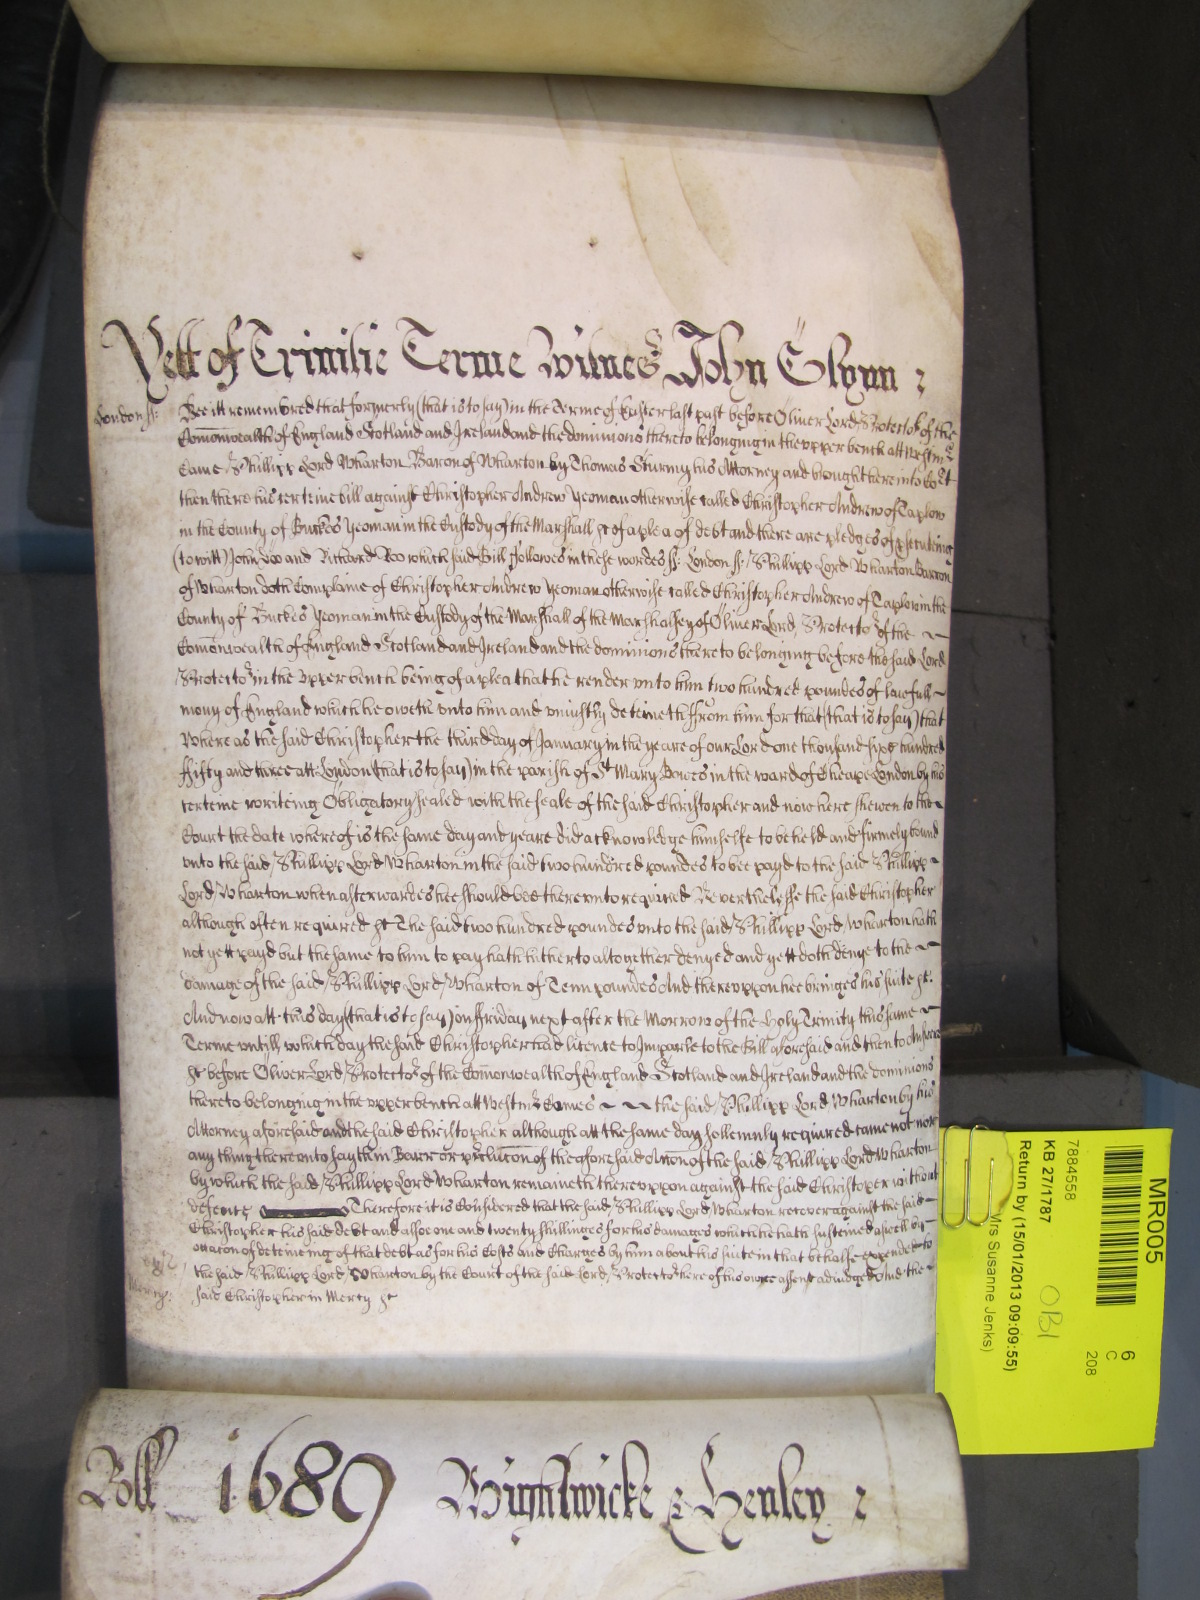 Yett of Trinitie Terme Witnes John Glynn
London ss: Bee itt remembred that formerly (that is to say) in the Terme of Easter last past before Oliver Lord Protector of the
Comonwealth of England Scotland and Ireland and the dominions thereto belonging in the upper bench att Westmr
Came Phillipp Lord Wharton Baron of Wharton by Thomas Sturmy his Attorney and brought here into Cort
then there his certeine bill against Christopher Andrew yeoman otherwise called Christopher Andrew of Taplow
in the County of Buckes yeoman in the Custody of the Marshall &c of a plea of debt and there are pledges of prosecuting
(to witt) John Doo and Richard Roo which said Bill followes in these wordes ss: London ss: Phillipp Lord Wharton Barron
of Wharton doth Complaine of Christopher Andrew yeoman otherwise called Christopher Andrew of Taplow in the
County of Buckes yeoman in the Custody of the Marshall of the Marshalsey of Oliver Lord Protector of the
Comonwealth of England Scotland and Ireland and the dominions thereto belonging before the said Lord
Protector in the upper bench being of a plea that he render unto him two hundred poundes of lawfull
mony of England which he oweth unto him and uniustly deteineth from him for that (that is to say) that
Where as the said Christopher the third day of January in the yeare of our Lord one thousand six hundred
ffifty and three att London (that is to say) in the parish of St Mary Bowes in the ward of Cheape London by his
certeine writeing Obligatory sealed with the seale of the said Christopher and now here shewen to the
Court the date whereof is the same day and yeare did acknowledge himselfe to be held and firmely bound
unto the said Phillipp Lord Wharton in the said two hundred poundes to bee payd to the said Phillipp
Lord Wharton when afterwardes hee should bee thereunto required Neverthelesse the said Christopher
although often required &c The said two hundred poundes unto the said Phillipp Lord Wharton hath
not yett payd but the same to him to pay hath hitherto altogether denyed and yett doth denye to the
damage of the said Phillipp Lord Wharton of Tenn poundes And thereuppon hee bringes his suite &c:
And now att this day (that is to say) on ffriday next after the Morrow of the Holy Trinity this same
Terme untill which day the said Christopher had licence to Imparle to the Bill aforesaid and then to Answere
&c before Oliver Lord Protector of the Comonwealth of England Scotland and Ireland and the dominions
thereto belonging in the upper bench att Westmr Comes the said Phillipp Lord Wharton by his
Attorney aforesaid and the said Christopher although att the same day sollemnly required came not nor
any thing thereunto sayth in Barr or preclucon of the aforesaid Accon of the said Phillipp Lord Wharton
by which the said Phillipp Lord Wharton remaineth thereuppon against the said Christoper without
defence Therefore it is Considered that the said Phillipp Lord Wharton recover against the said
Christopher his said debt and alsoe one and twenty shillinges for his damages which he hath susteined aswell by
occacon of deteineing of that debt as for his Costs and Charges by him about his suite in that behalfe expended to
the said Phillipp Lord Wharton by the Court of the said Lord Protector here of his owne assent adiudged And the
Mercy: said Christopher in Mercy &c
Roll 1689 Wightwicke & Henley
MR005
6
C
208
7884558
KB 27/1787
OBI
Return by (15/01/2013 09:09:55)
Mrs Susanne Jenks)